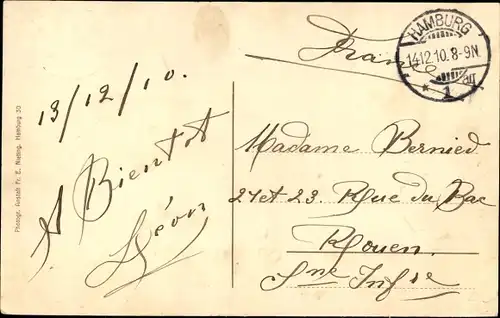 13/12/10.
A Bientot
Léon
France
HAMBURG
14.12.10.8-9N.
* 1
Madame Bernied
21 et 23 Rue du Bac
Rouen.
Sne Infre
Photogr. Anstalt Fr. E. Nieding, Hamburg 30